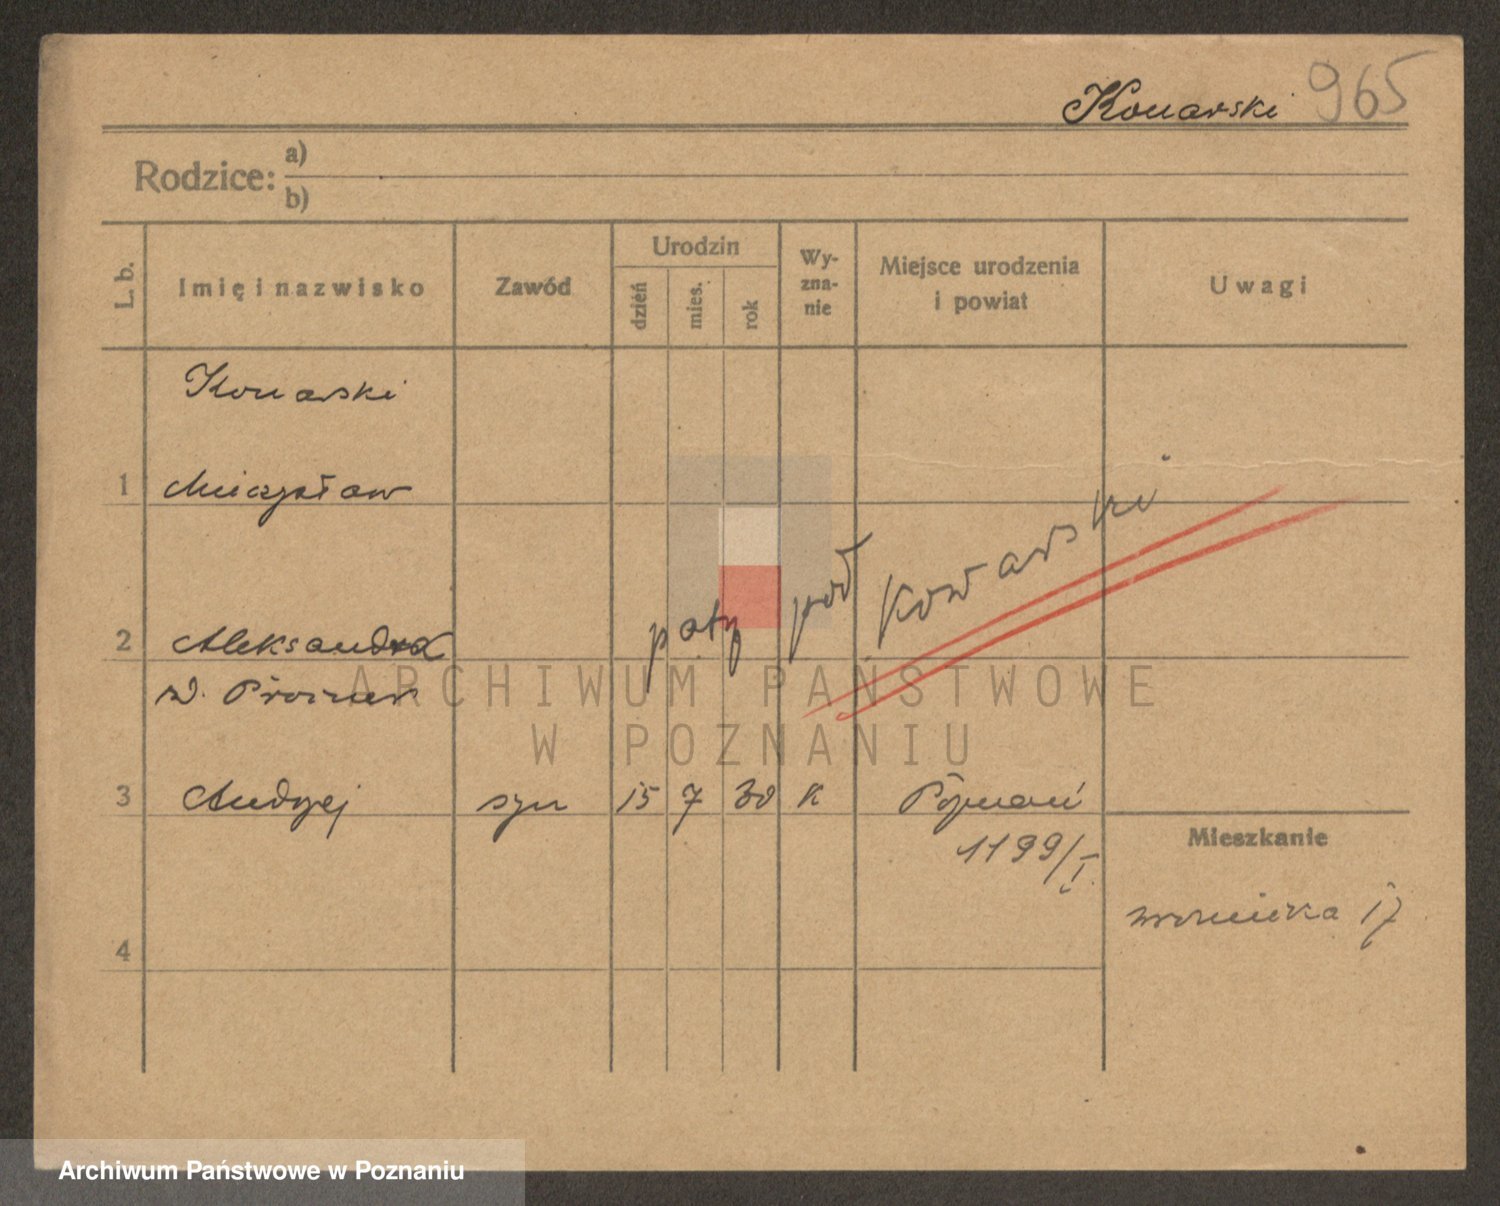 Konarski 965
Rodzice: a)
b)
L. b.
Imię i nazwisko
Zawód
Urodzin
dzień
mies.
rok
Wy-
zna-
nie
Miejsce urodzenia
i powiat
Uwagi
Konarski
1 Mieczysław
2 Aleksandra
patrz pod Kowarski
3 Andrzej syn 15 7 30 K Poznań
1199/I.
Mieszkanie
17
4
ARCHIWUM PAŃSTWOWE
W POZNANIU
Archiwum Państwowe w Poznaniu